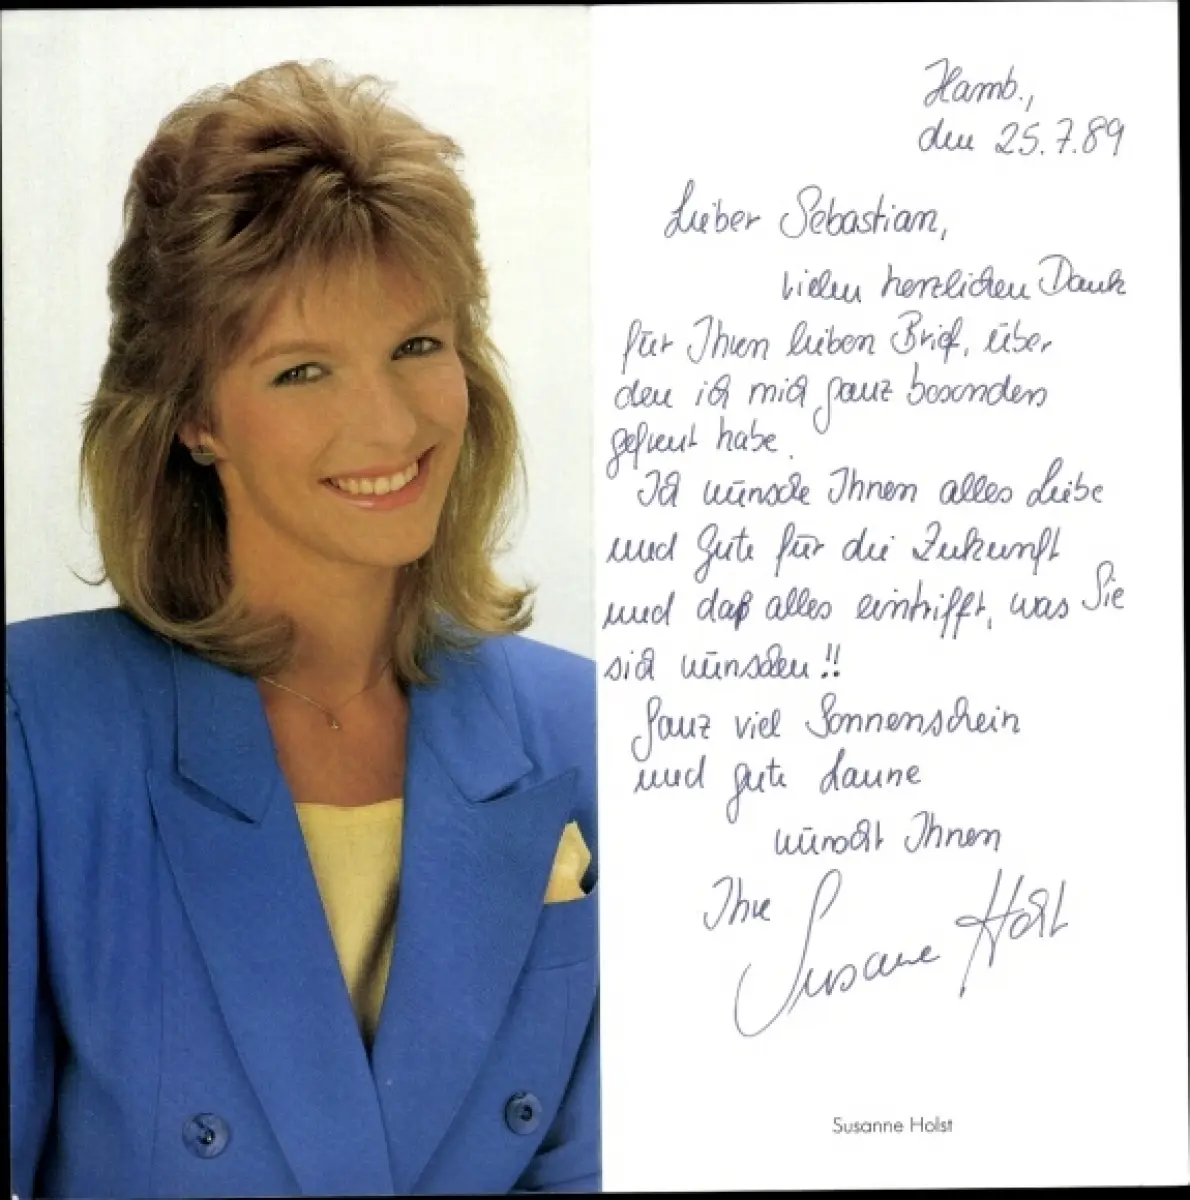 Hamb.,
den 25.7.89
Lieber Sebastian,
vielen herzlichen Dank
für Ihren lieben Brief, über
den ich mich ganz besonders
gefreut habe.
Ich wünsche Ihnen alles Liebe
und Gute für die Zukunft
und daß alles eintrifft, was Sie
sich wünschen!!
Ganz viel Sonnenschein
und gute Laune
wünscht Ihnen
Ihre
Susanne Holst
Susanne Holst